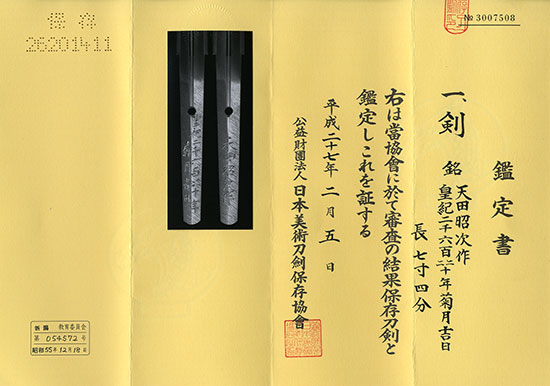 № 3007508
鑑定書
一、剣
銘 天田昭次作
皇紀二千六百二十年菊月吉日
長 七寸四分
右は當協會に於て審査の結果保存刀剣と
鑑定しこれを証する
平成二十七年 二月 五日
公益財團法人 日本美術刀剣保存協會
保存
26201411
新潟 教育委員会
第 054572 号
昭和55年12月18日